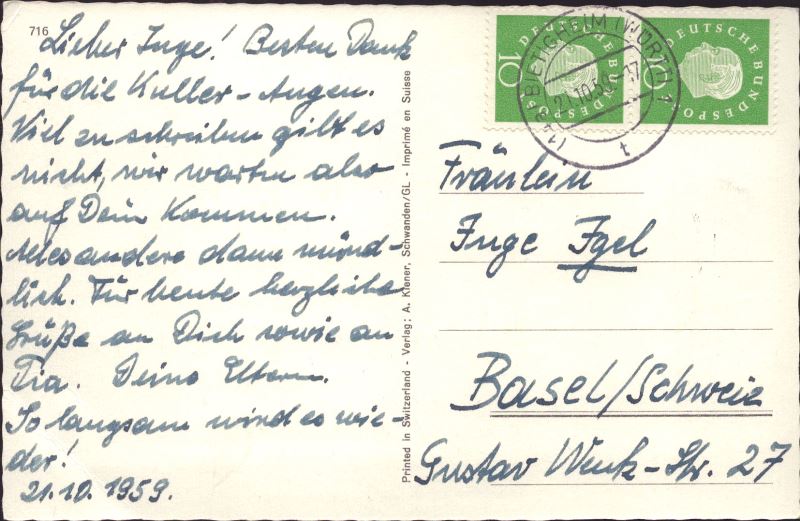 716
Lieber Inge! Besten Dank
für die Kuller-Augen.
Viel zu schreiben gilt es
nicht, wir warten also
auf Dein Kommen.
Alles andere dann münd-
lich. Für heute herzliche
Grüße an Dich sowie an
Pia. Deine Eltern.
So langsam wird es wie-
der!
21.10.1959.
Printed in Switzerland - Verlag: A. Kiener, Schwanden/GL - Imprimé en Suisse
10 DEUTSCHE BUNDESPOST
10 DEUTSCHE BUNDESPOST
BIETIGHEIM (WÜRTT) 1
21.10.59
t
Fräulein
Inge Igel
Basel/Schweiz
Gustav Wenk-Str. 27